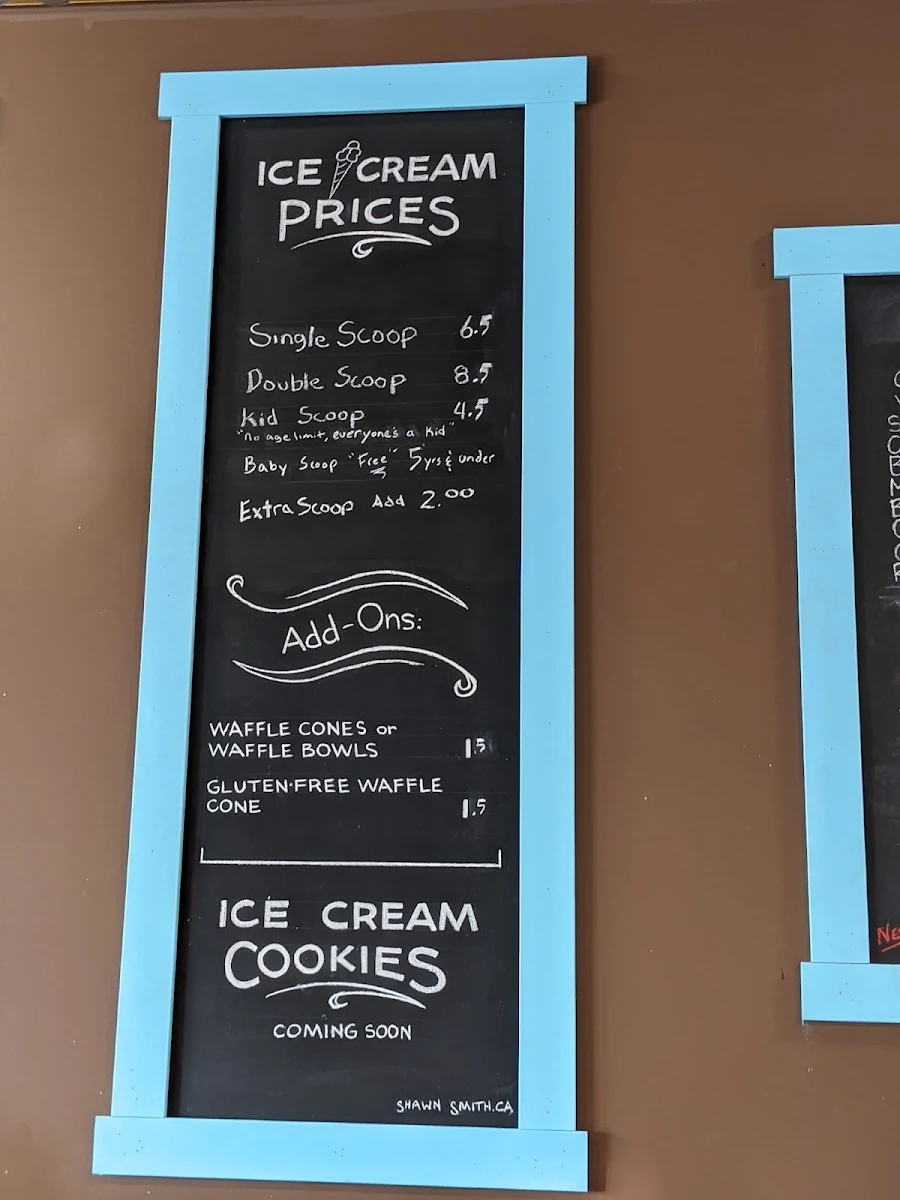 ICE CREAM
PRICES
Single Scoop 6.5
Double Scoop 8.5
Kid Scoop 4.5
"no age limit, everyone's a kid"
Baby Scoop "Free" 5yrs & under
Extra Scoop Add 2.00
Add-Ons:
WAFFLE CONES or
WAFFLE BOWLS 1.5
GLUTEN-FREE WAFFLE
CONE 1.5
ICE CREAM
COOKIES
COMING SOON
SHAWN SMITH.CA